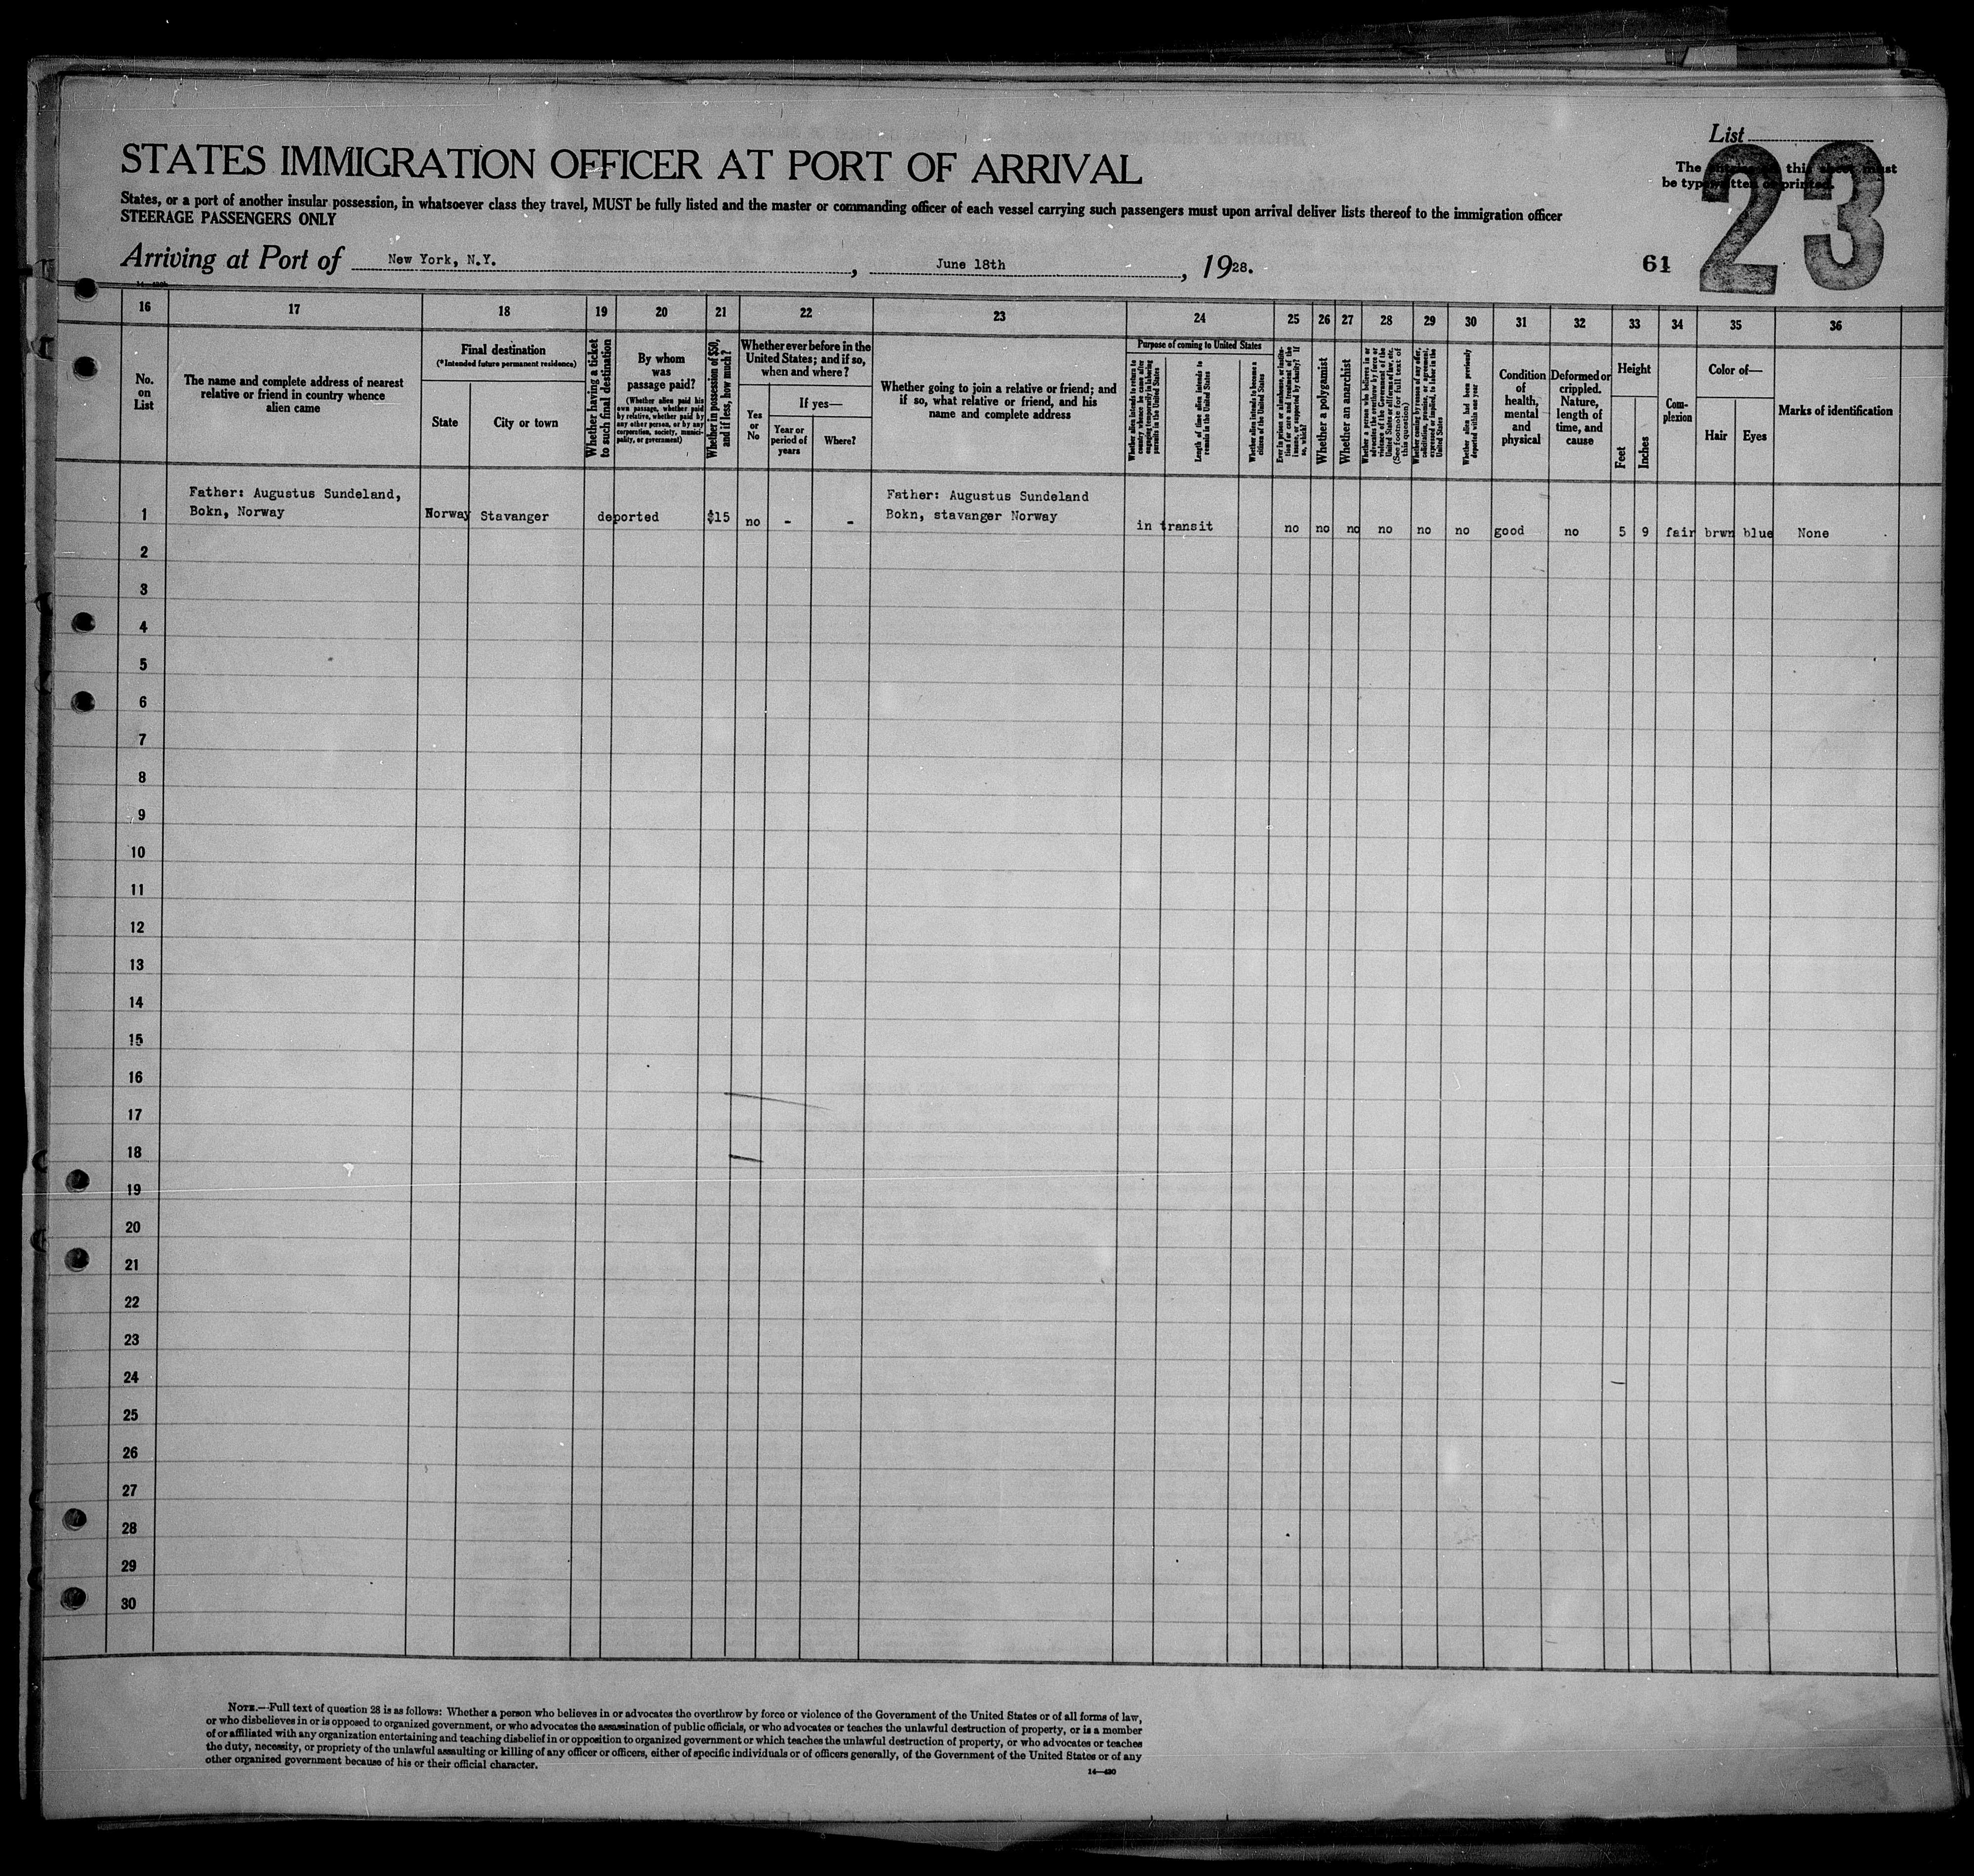 List
23
The entries on this sheet must
be typewritten or printed.
STATES IMMIGRATION OFFICER AT PORT OF ARRIVAL
States, or a port of another insular possession, in whatsoever class they travel, MUST be fully listed and the master or commanding officer of each vessel carrying such passengers must upon arrival deliver lists thereof to the immigration officer
STEERAGE PASSENGERS ONLY
Arriving at Port of New York, N.Y., June 18th, 1928.
61
16 17 18 19 20 21 22 23 24 25 26 27 28 29 30 31 32 33 34 35 36
No.
on
List
The name and complete address of nearest
relative or friend in country whence
alien came
Final destination
(*Intended future permanent residence)
State
City or town
Whether having a ticket
to such final destination
By whom
was
passage paid?
(Whether alien paid his
own passage, whether paid
by relative, whether paid by
any other person, or by any
corporation, society, munici-
pality, or government)
Whether in possession of $50,
and if less, how much?
Whether ever before in the
United States; and if so,
when and where?
Yes
or
No
If yes—
Year or
period of
years
Where?
Whether going to join a relative or friend; and
if so, what relative or friend, and his
name and complete address
Purpose of coming to United States
Whether alien intends to return to
country whence he came after
engaging temporarily in laboring
pursuits in the United States
Length of time alien intends to
remain in the United States
Whether alien intends to become a
citizen of the United States
Ever in prison or almshouse, or institu-
tion for care and treatment of the
insane, or supported by charity? If
so, which?
Whether a polygamist
Whether an anarchist
Whether a person who believes in or
advocates the overthrow by force or
violence of the Government of the
United States or all forms of law, etc.
(See footnote for full text of
this question)
Whether coming by reason of any offer,
solicitation, promise, or agreement,
expressed or implied, to labor in the
United States
Whether alien had been previously
deported within one year
Condition
of
health,
mental
and
physical
Deformed or
crippled.
Nature,
length of
time, and
cause
Height
Feet
Inches
Com-
plexion
Color of—
Hair
Eyes
Marks of identification
Father: Augustus Sundeland, Father: Augustus Sundeland
1 Bokn, Norway Norway Stavanger deported $15 no - - Bokn, stavanger Norway in transit no no no no no no good no 5 9 fair brwn blue None
2
3
4
5
6
7
8
9
10
11
12
13
14
15
16
17
18
19
20
21
22
23
24
25
26
27
28
29
30
NOTE.—Full text of question 28 is as follows: Whether a person who believes in or advocates the overthrow by force or violence of the Government of the United States or of all forms of law,
or who disbelieves in or is opposed to organized government, or who advocates the assassination of public officials, or who advocates or teaches the unlawful destruction of property, or is a member
of or affiliated with any organization entertaining and teaching disbelief in or opposition to organized government or which teaches the unlawful destruction of property, or who advocates or teaches
the duty, necessity, or propriety of the unlawful assaulting or killing of any officer or officers, either of specific individuals or of officers generally, of the Government of the United States or of any
other organized government because of his or their official character.
14—430